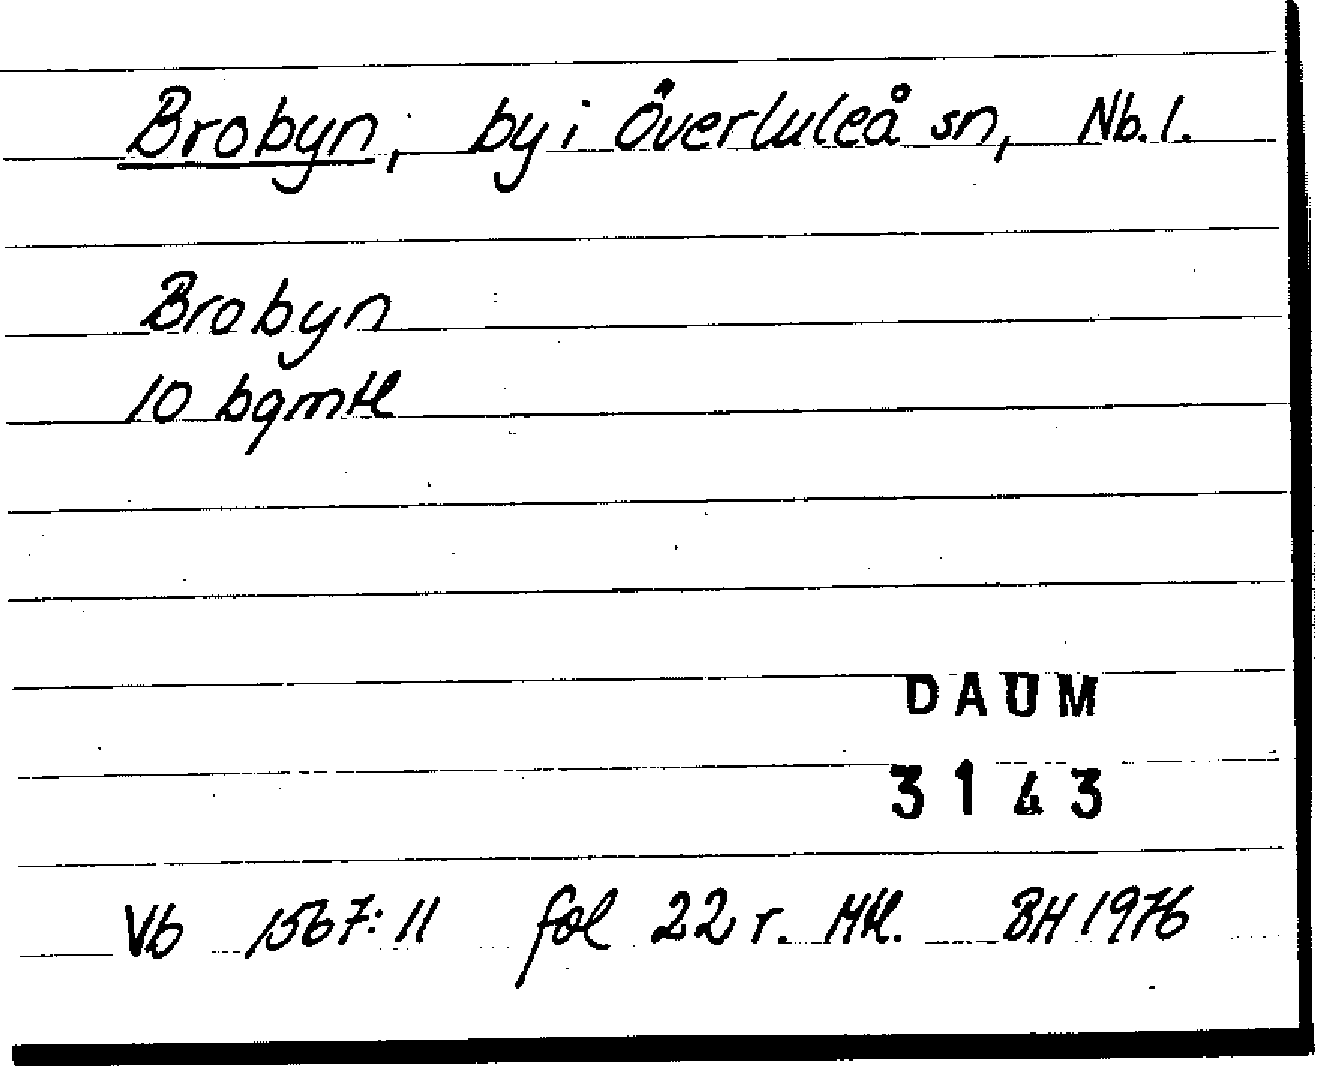 Brobyn, by i Överluleå sn, Nb. l.
Brobyn
10 bgmtl
DAUM
3143
Vb 1567:11 fol 22 r. Mtl. BH 1976